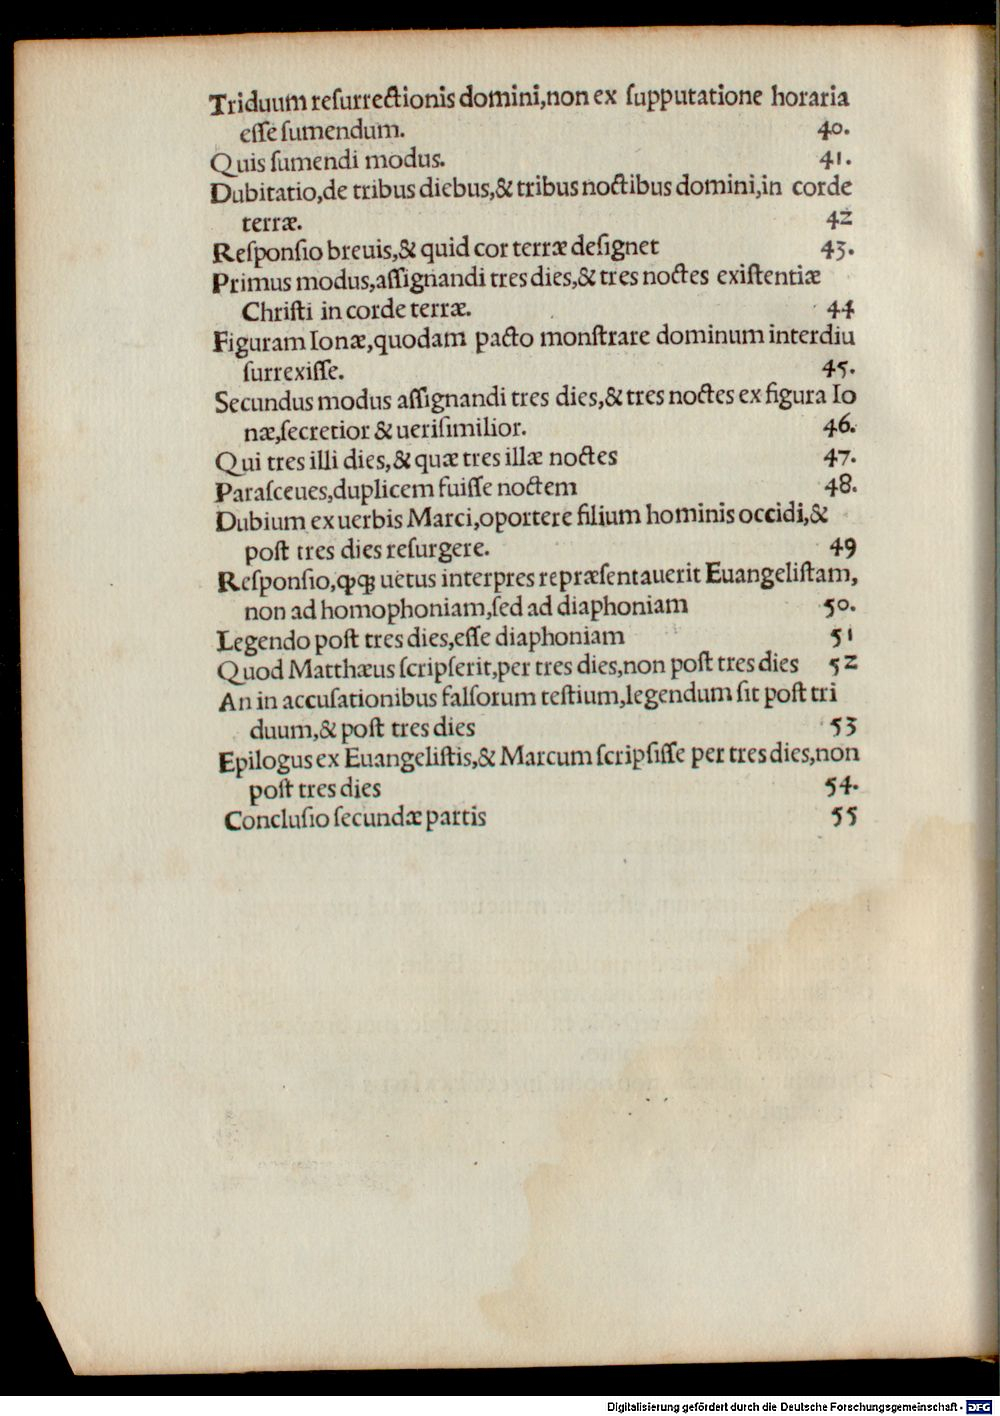 Triduum reſurrectionis domini,non ex ſupputatione horaria
eſſe ſumendum. 40.
Quis ſumendi modus. 41.
Dubitatio,de tribus diebus,& tribus noctibus domini,in corde
terræ. 42
Reſponſio breuis,& quid cor terræ deſignet 43.
Primus modus,aſſignandi tres dies,& tres noctes exiſtentiæ
Chriſti in corde terræ. 44
Figuram Ionæ,quodam pacto monſtrare dominum interdiu
ſurrexiſſe. 45.
Secundus modus aſſignandi tres dies,& tres noctes ex figura Io
næ,ſecretior & ueriſimilior. 46.
Qui tres illi dies,& quæ tres illæ noctes 47.
Paraſceues,duplicem fuiſſe noctem 48.
Dubium ex uerbis Marci,oportere filium hominis occidi,&
poſt tres dies reſurgere. 49
Reſponſio,ꝙꝗ uetus interpres repræſentauerit Euangeliſtam,
non ad homophoniam,ſed ad diaphoniam 50.
Legendo poſt tres dies,eſſe diaphoniam 51
Quod Matthæus ſcripſerit,per tres dies,non poſt tres dies 52
An in accuſationibus falſorum teſtium,legendum ſit poſt tri
duum,& poſt tres dies 53
Epilogus ex Euangeliſtis,& Marcum ſcripſiſſe per tres dies,non
poſt tres dies 54.
Concluſio ſecundæ partis 55
Digitalisierung gefördert durch die Deutsche Forschungsgemeinschaft - DFG